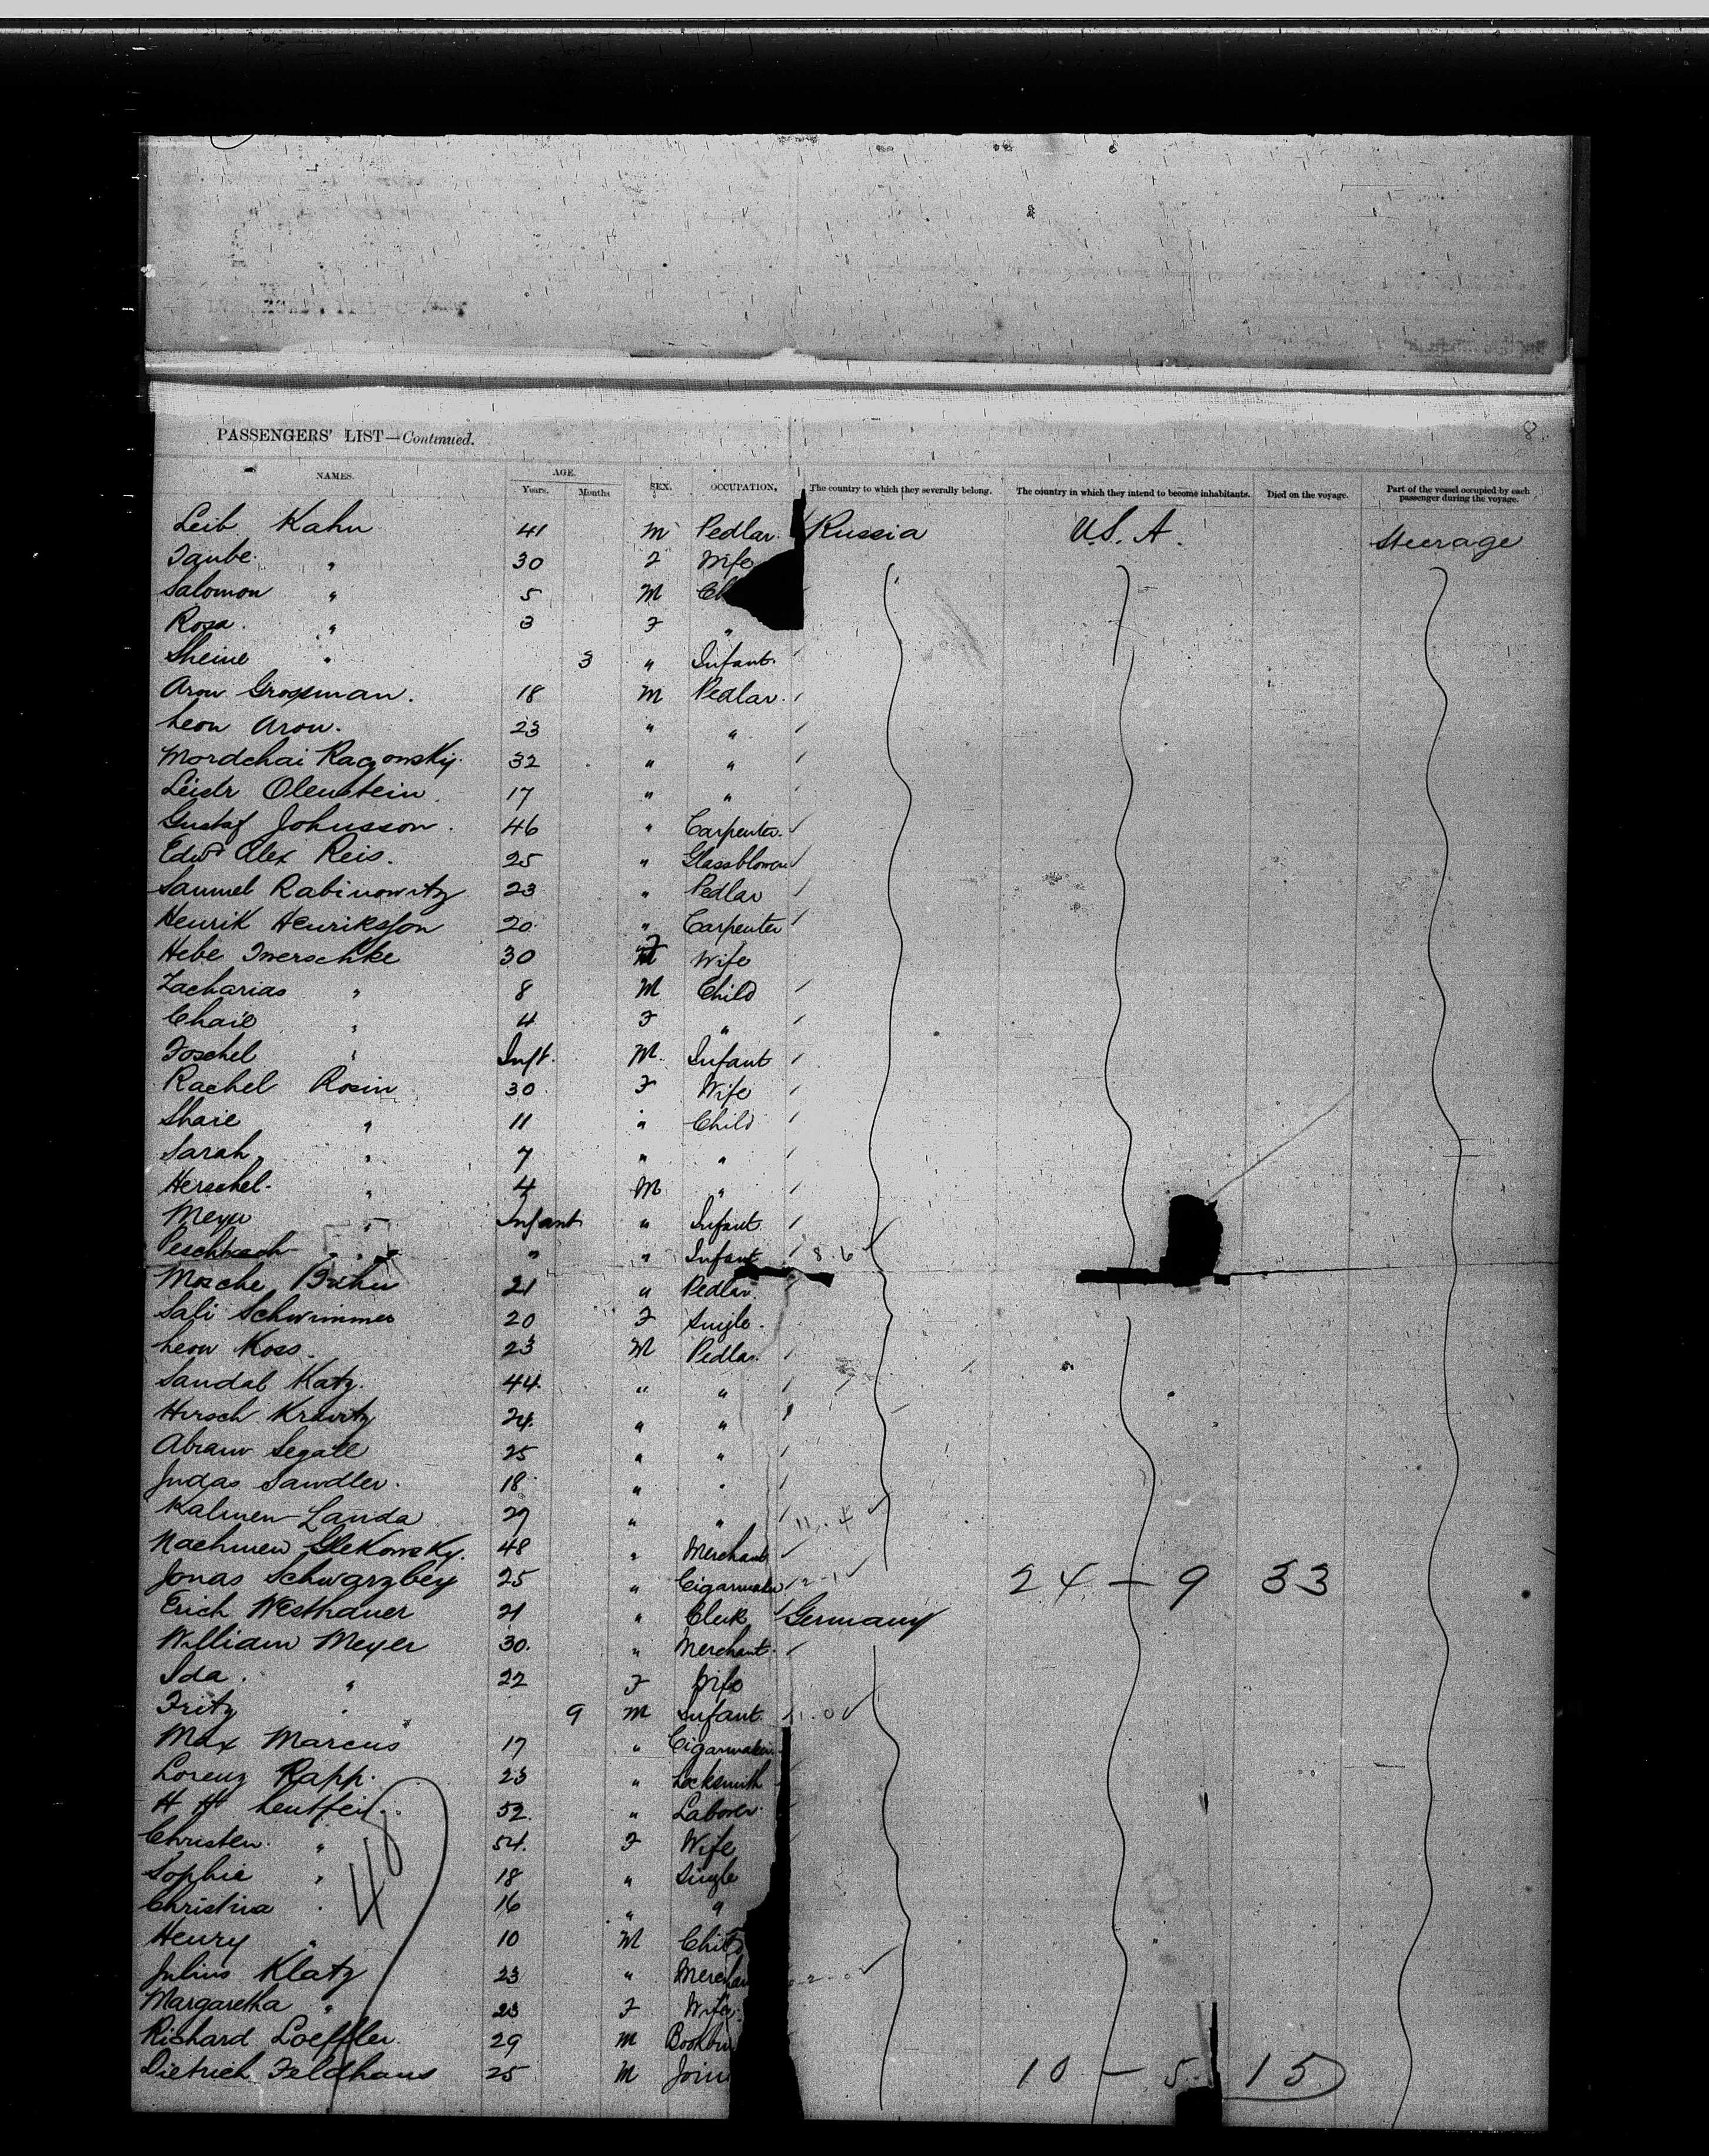 8
PASSENGERS' LIST—Continued.
NAMES. AGE. Years. Months SEX. OCCUPATION, The country to which they severally belong. The country in which they intend to become inhabitants. Died on the voyage. Part of the vessel occupied by each passenger during the voyage.
Leib Kahn 41 M Pedlar Russia U.S. A. Steerage
Taube " 30 F Wife
Salomon " 5 M Ch
Rosa " 3 F "
Sheine " 3 " Infant
Aron Grossman. 18 M Pedlar
Leon Aron. 23 " "
Mordchai Ragowsky 32 " "
Leidr Olenstein 17 " "
Gustaf Johnsson 46 " Carpenter
Edwd Alex Reis. 25 " Glassblower
Samuel Rabinowitz 23 " Pedlar
Henrik Henriksson 20 " Carpenter
Hebe Twerschke 30 F Wife
Zacharias " 8 M Child
Chaie " 4 F "
Foschel " Inft. M. Infant
Rachel Rosin 30 F Wife
Shaie " 11 " Child
Sarah " 7 " "
Herschel " 4 M "
Meyer " Infant " Infant
" " " Infant 8.6
Mosche 21 " Pedlar
Sali Schwimmer 20 F Single
Leon Koss. 23 M Pedlar
Sandal Katz. 44 " "
Hirsch Kravitz 24. " "
Abram Segall 25 " "
Judas Sandler. 18 " "
Kalmen Landa 29 " " 11.4
Nachmen Glekowsky. 48 " Merchant
Jonas Schwarzbey 25 " Cigarmaker 2-1 24 — 9 33
Erich Westhauer 21 " Clerk Germany
William Meyer 30. " Merchant
Ida " 22 F Wife
Fritz " 9 M Infant 1.0
Max Marcus 17 " Cigarmaker
Lorenz Rapp. 23 " Locksmith
H H Leutfeil 52. " Laborer
Christen " 54. F Wife
Sophie " 18 " Single
Christina " 16 " "
Henry " 10 M Child
48
Julius Klatz 23 " Merchan
Margaretha " 23 F Wife
Richard Loeffler. 29 M Bookbin
Dietrich Feldhaus 25 M Join 10 — 5 15